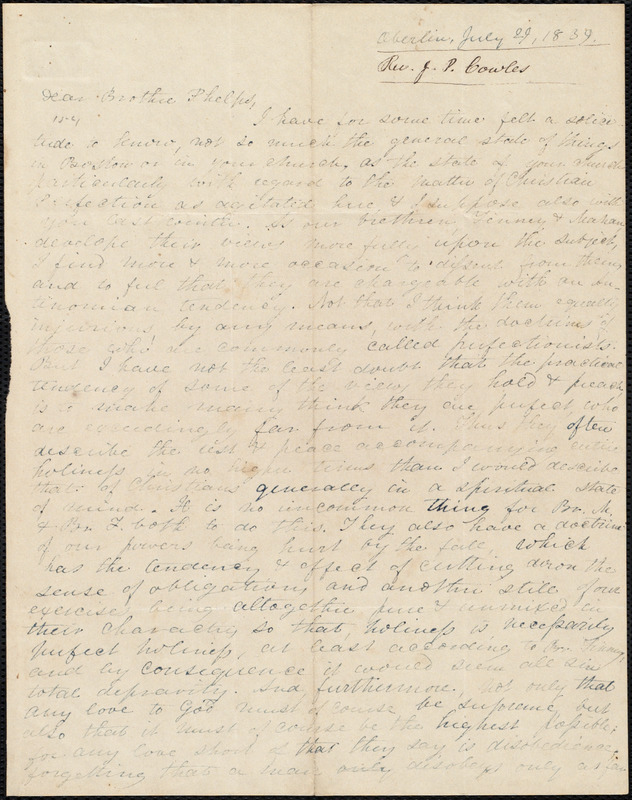 Oberlin, July 29, 1839.
Rev. J. P. Cowles
Dear Brother Phelps,
I have for some time felt a solici
tude to know, not so much the general state of things
in Boston or in your church, as the state of your church
particularly with regard to the matter of Christian
Perfection as agitated here & I suppose also with
you last winter. As our brethren, Finney & Mahan
develope their views more fully upon the subject,
I find more & more occasion to dissent from them,
and to feel that they are chargeable with an an-
tinomian tendency. Not that I think them equally
injurious by any means, with the doctrines of
those who are commonly called perfectionists.
But I have not the least doubt that the practical
tendency of some of the views they hold & preach
is to make many think they are perfect, who
are exceedingly far from it. Thus they often
describe the rest & peace accompanying entire
holiness in no higher terms than I would describe
that of Christians generally in a spiritual state
of mind. It is no uncommon thing for Br. M.
& Br. F. both to do this. They also have a doctrine
of our powers being hurt by the fall, which
has the tendency & effect of cutting down the
sense of obligation, and another still of our
exercises being altogether pure & unmixed in
their character, so that, holiness is necessarily
perfect holiness, at least according to Br. Finney,
and by consequence it would seem all sin
total depravity. And furthermore, not only that
any love to God must of course be supreme, but
also that it must of course be the highest possible;
for any love short of that they say is disobedience,
forgetting that a man only disobeys only as far